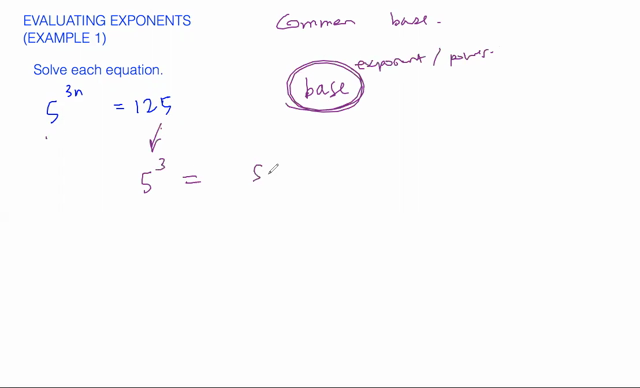 EVALUATING EXPONENTS
(EXAMPLE 1)
Common base.
Solve each equation.
base exponent / power.
5^3n = 125
5^3 = 5